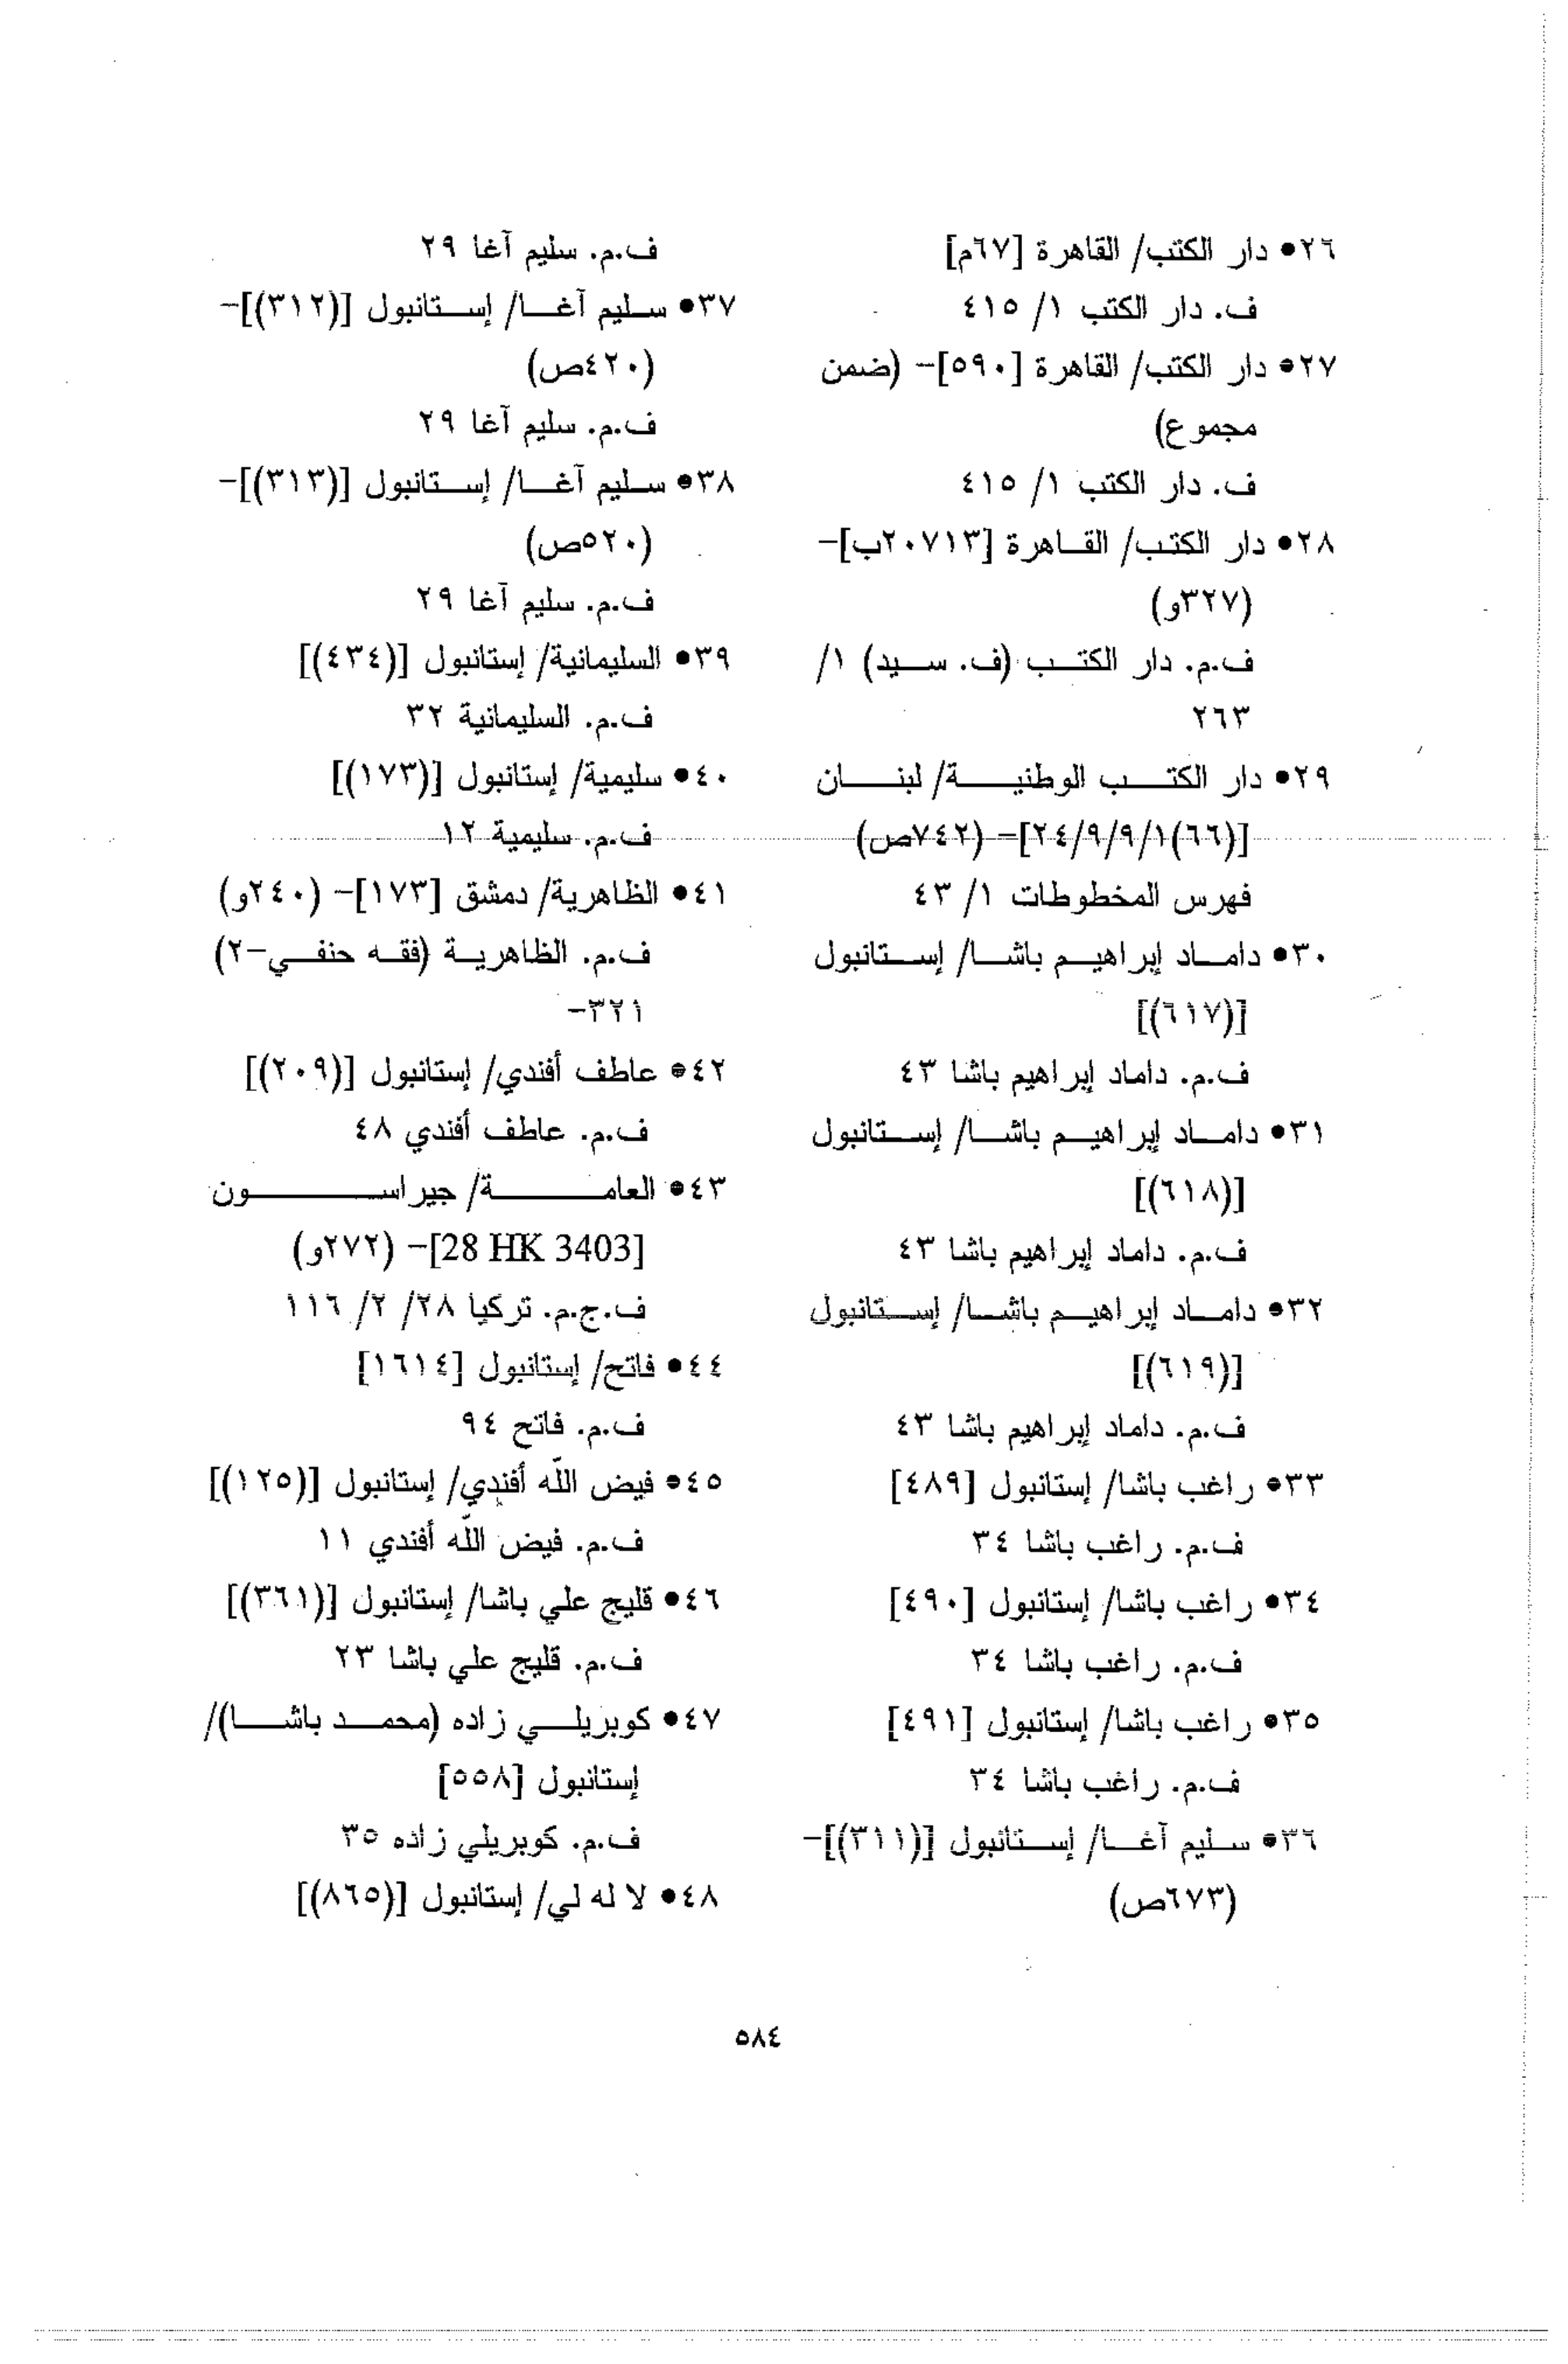 ٢٦• دار الكتب/ القاهرة [٦٧م]
ف. دار الكتب ١/ ٤١٥
٢٧• دار الكتب/ القاهرة [٥٩٠]– (ضمن
مجموع)
ف. دار الكتب ١/ ٤١٥
٢٨• دار الكتب/ القاهرة [٢٠٧١٣ب]–
(٣٢٧و)
ف.م. دار الكتب (ف. سيد) ١/
٢٦٣
٢٩• دار الكتب الوطنية/ لبنان
[(٦٦)٢٤/٩/٩/١]– (٧٤٢ص)
فهرس المخطوطات ١/ ٤٣
٣٠• داماد إبراهيم باشا/ إستانبول
[(٦١٧)]
ف.م. داماد إبراهيم باشا ٤٣
٣١• داماد إبراهيم باشا/ إستانبول
[(٦١٨)]
ف.م. داماد إبراهيم باشا ٤٣
٣٢• داماد إبراهيم باشا/ إستانبول
[(٦١٩)]
ف.م. داماد إبراهيم باشا ٤٣
٣٣• راغب باشا/ إستانبول [٤٨٩]
ف.م. راغب باشا ٣٤
٣٤• راغب باشا/ إستانبول [٤٩٠]
ف.م. راغب باشا ٣٤
٣٥• راغب باشا/ إستانبول [٤٩١]
ف.م. راغب باشا ٣٤
٣٦• سليم آغا/ إستانبول [(٣١١)]–
(٦٧٣ص)
ف.م. سليم آغا ٢٩
٣٧• سليم آغا/ إستانبول [(٣١٢)]–
(٤٢٠ص)
ف.م. سليم آغا ٢٩
٣٨• سليم آغا/ إستانبول [(٣١٣)]–
(٥٢٠ص)
ف.م. سليم آغا ٢٩
٣٩• السليمانية/ إستانبول [(٤٣٤)]
ف.م. السليمانية ٣٢
٤٠• سليمية/ إستانبول [(١٧٣)]
ف.م. سليمية ١٢
٤١• الظاهرية/ دمشق [١٧٣]– (٢٤٠و)
ف.م. الظاهرية (فقه حنفي–٢)
٣٢١–
٤٢• عاطف أفندي/ إستانبول [(٢٠٩)]
ف.م. عاطف أفندي ٤٨
٤٣• العامة/ جيراسون
[28 HK 3403]– (٢٧٢و)
ف.ج.م. تركيا ٢٨/ ٢/ ١١٦
٤٤• فاتح/ إستانبول [١٦١٤]
ف.م. فاتح ٩٤
٤٥• فيض الله أفندي/ إستانبول [(١٢٥)]
ف.م. فيض الله أفندي ١١
٤٦• قليج علي باشا/ إستانبول [(٣٦١)]
ف.م. قليج علي باشا ٢٣
٤٧• كوبريلي زاده (محمد باشا)/
إستانبول [٥٥٨]
ف.م. كوبريلي زاده ٣٥
٤٨• لا له لي/ إستانبول [(٨٦٥)]
٥٨٤